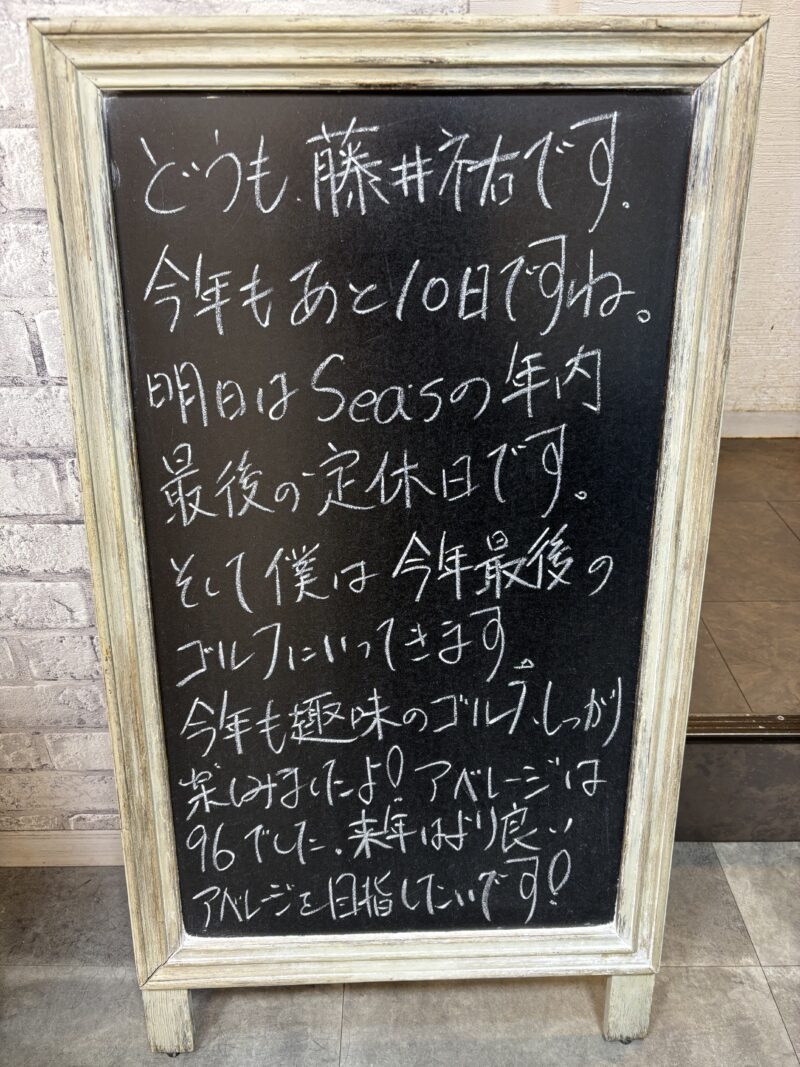 どうも、藤井祐です。
今年もあと10日ですね。
明日はSeasの年内
最後の定休日です。
そして僕は今年最後の
ゴルフにいってきます。
今年も趣味のゴルフ、しっかり
楽しみましたよ！アベレージは
96でした、来年はより良い
アベレージを目指したいです！